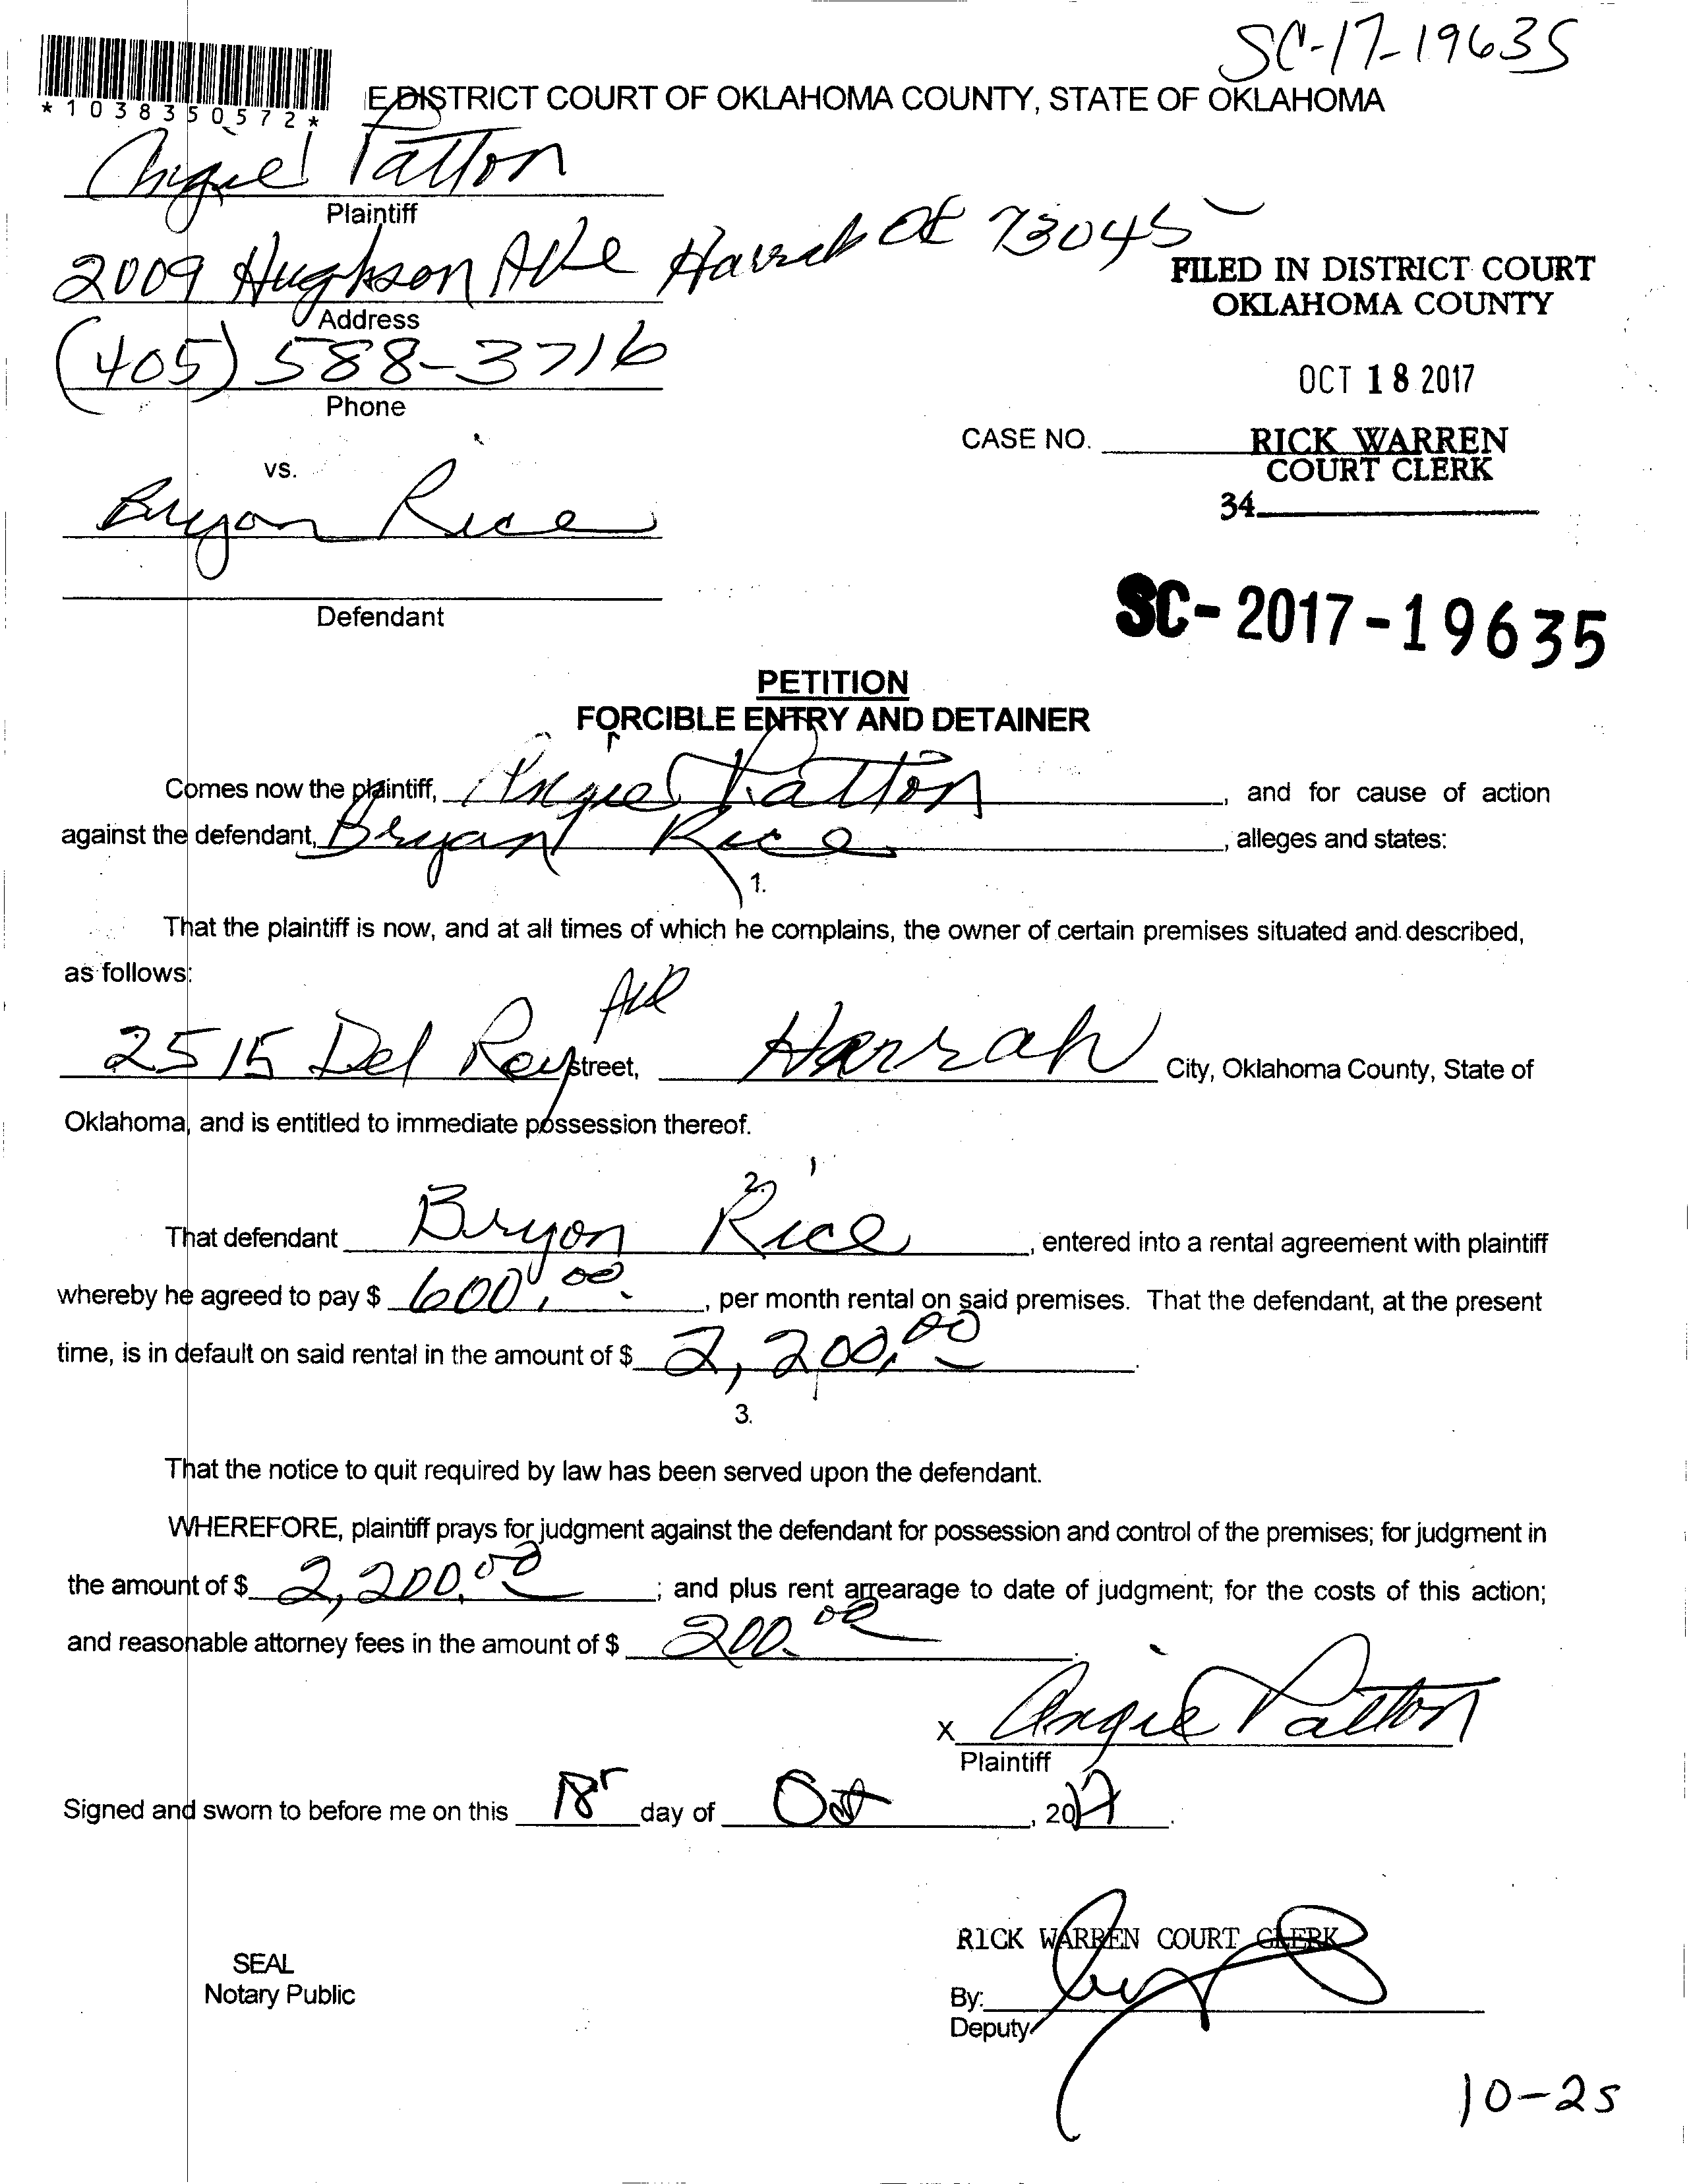 SC-17-19635
*1038350572*
E DISTRICT COURT OF OKLAHOMA COUNTY, STATE OF OKLAHOMA
Angie Patton
Plaintiff
2009 Hughson Ave Harrah OK 73045
Address
FILED IN DISTRICT COURT
OKLAHOMA COUNTY
(405) 588-3716
Phone
OCT 18 2017
CASE NO.
RICK WARREN
COURT CLERK
34
vs.
Bryon Rice
Defendant
SC-2017-19635
PETITION
FORCIBLE ENTRY AND DETAINER
Comes now the plaintiff, Angie Patton, and for cause of action
against the defendant, Bryan Rice, alleges and states:
1.
That the plaintiff is now, and at all times of which he complains, the owner of certain premises situated and described,
as follows:
2515 Del Rey Ave street, Harrah City, Oklahoma County, State of
Oklahoma, and is entitled to immediate possession thereof.
2.
That defendant Bryon Rice, entered into a rental agreement with plaintiff
whereby he agreed to pay $ 600.00, per month rental on said premises. That the defendant, at the present
time, is in default on said rental in the amount of $ 2,200.00.
3.
That the notice to quit required by law has been served upon the defendant.
WHEREFORE, plaintiff prays for judgment against the defendant for possession and control of the premises; for judgment in
the amount of $ 2,200.00; and plus rent arrearage to date of judgment; for the costs of this action;
and reasonable attorney fees in the amount of $ 200.00.
X Angie Patton
Plaintiff
Signed and sworn to before me on this 18 day of Oct, 2017.
RICK WARREN COURT CLERK
SEAL
Notary Public
By:
Deputy
10-25